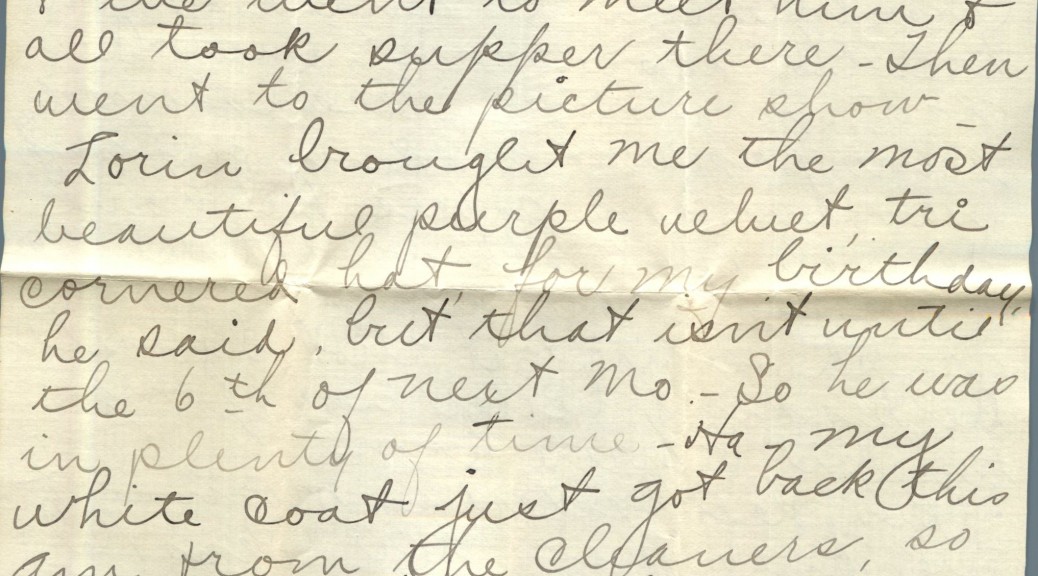 went to meet him &
all took supper there - Then
went to the picture show -
Lorin brought me the most
beautiful purple velvet, tri
cornered hat, "for my birthday,"
he said, but that isn't until
the 6th of next Mo. - So he was
in plenty of time - Ha - my
white coat just got back (this
am from the cleaners, so